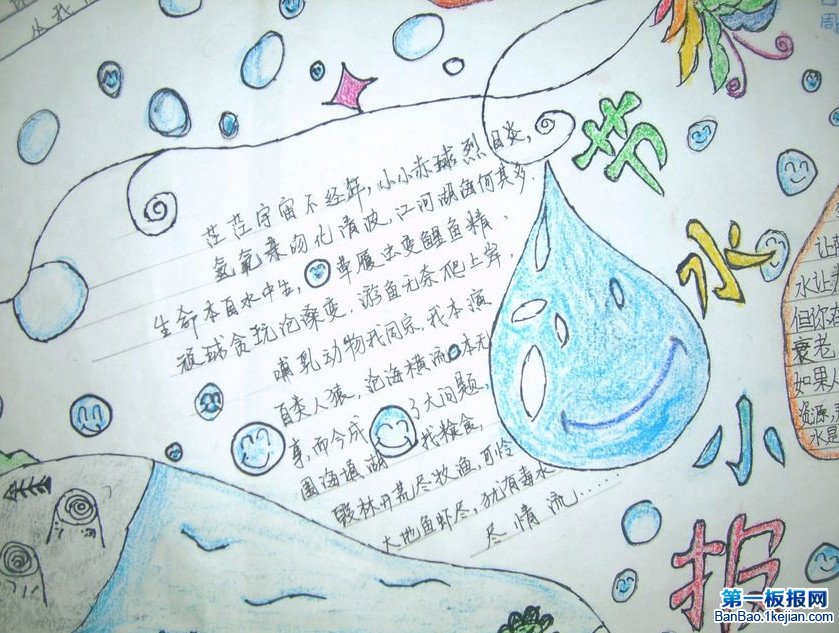 从我
茫茫宇宙不经年，小小赤球烈日炎，
氢氧亲吻化清波，江河湖海何其多，
生命本自水中生，草履虫变鲤鱼精，
顽球贪玩沧桑变，游鱼无奈爬上岸，
哺乳动物我同宗，我本演
自类人猿，沧海横流本无
事，而今成了大问题，
围海填湖我粮食，
毁林开荒尽牧渔，可怜
大地鱼虾尽，犹有毒水
尽情流……
节水小报
让
水让
但你
衰老
如果
资源，
水
第一板报网
BanBao.1kejian.com